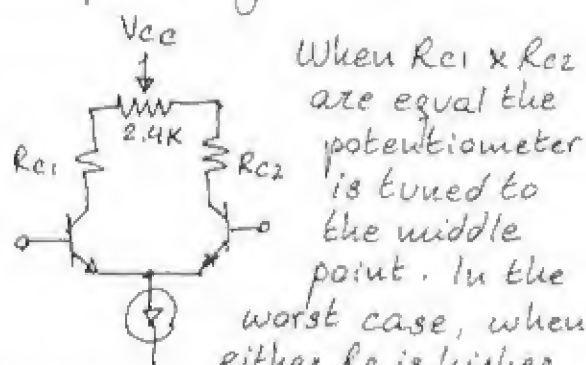 Vcc
2.4K
Rc1
Rc2
When Rc1 & Rc2
are equal the
potentiometer
is tuned to
the middle
point. In the
worst case, when
either Rc is higher